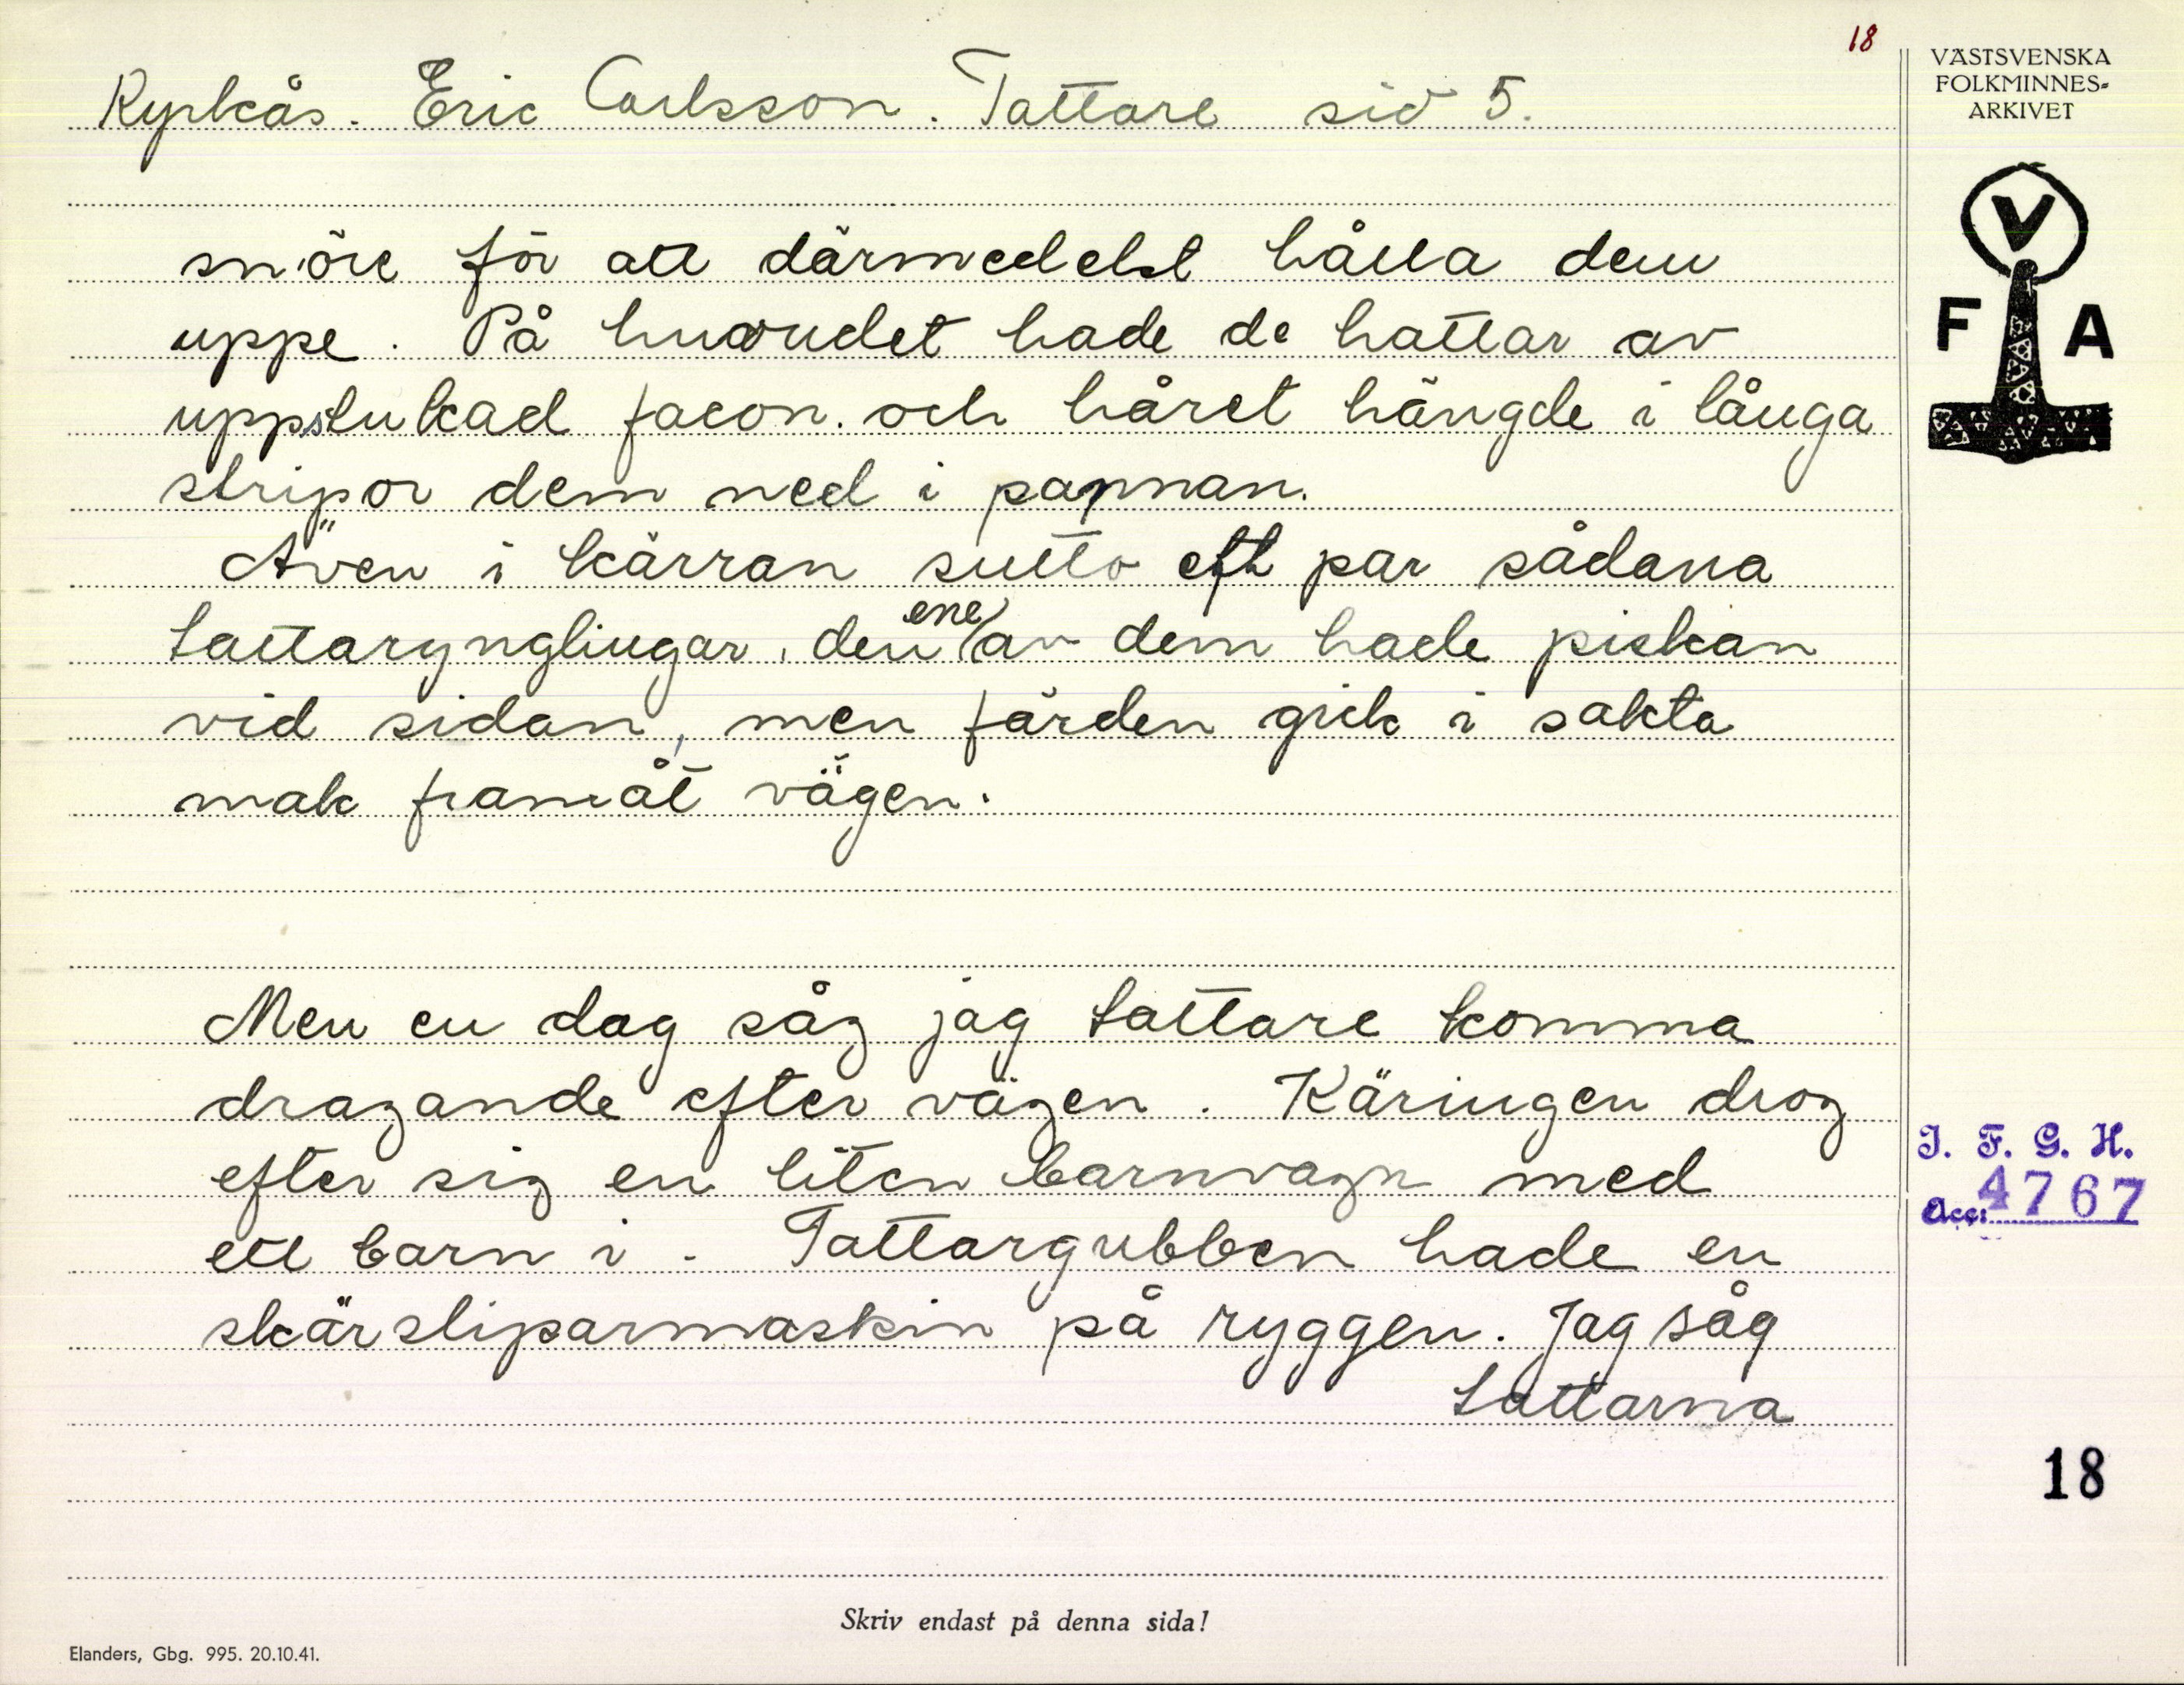 18
Kyrkås. Eric Carlsson. Tattare sid 5.
snöre för att därmedelst hålla dem
uppe. På huvudet hade de hattar av
uppslukad facon. och håret hängde i långa
stripor dem ned i pannan.
Även i kärran sutto ett par sådana
tattarynglingar, den ene av dem hade piskan
vid sidan, men färden gick i sakta
mak framåt vägen.
Men en dag såg jag tattare komma
dragande efter vägen. Käringen drog
efter sig en liten barnvagn med
ett barn i. Tattargubben hade en
skärsliparmaskin på ryggen. Jag såg
tattarna
Skriv endast på denna sida!
Elanders, Gbg. 995. 20.10.41.
VÄSTSVENSKA
FOLKMINNES-
ARKIVET
V
F A
I. F. G. H.
Acc: 4767
18